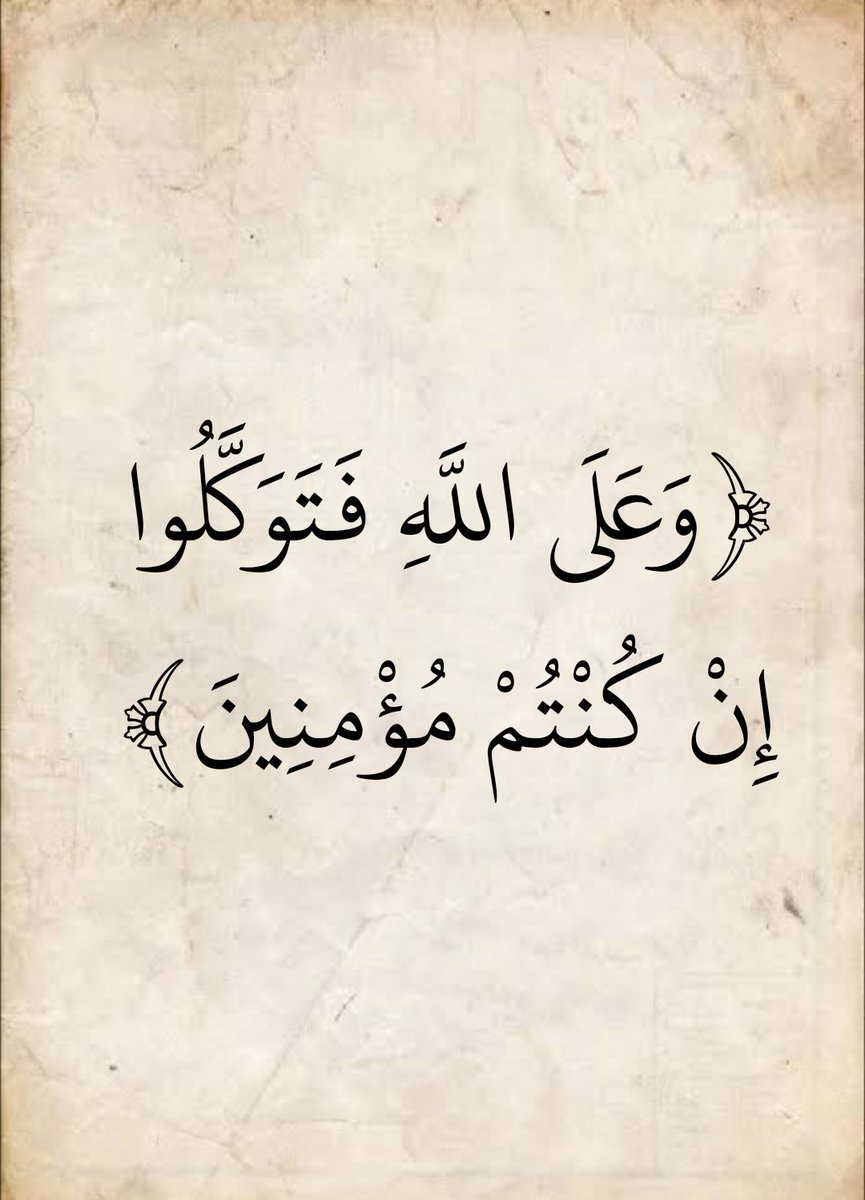 ﴿وَعَلَى اللَّهِ فَتَوَكَّلُوا
إِنْ كُنْتُمْ مُؤْمِنِينَ﴾